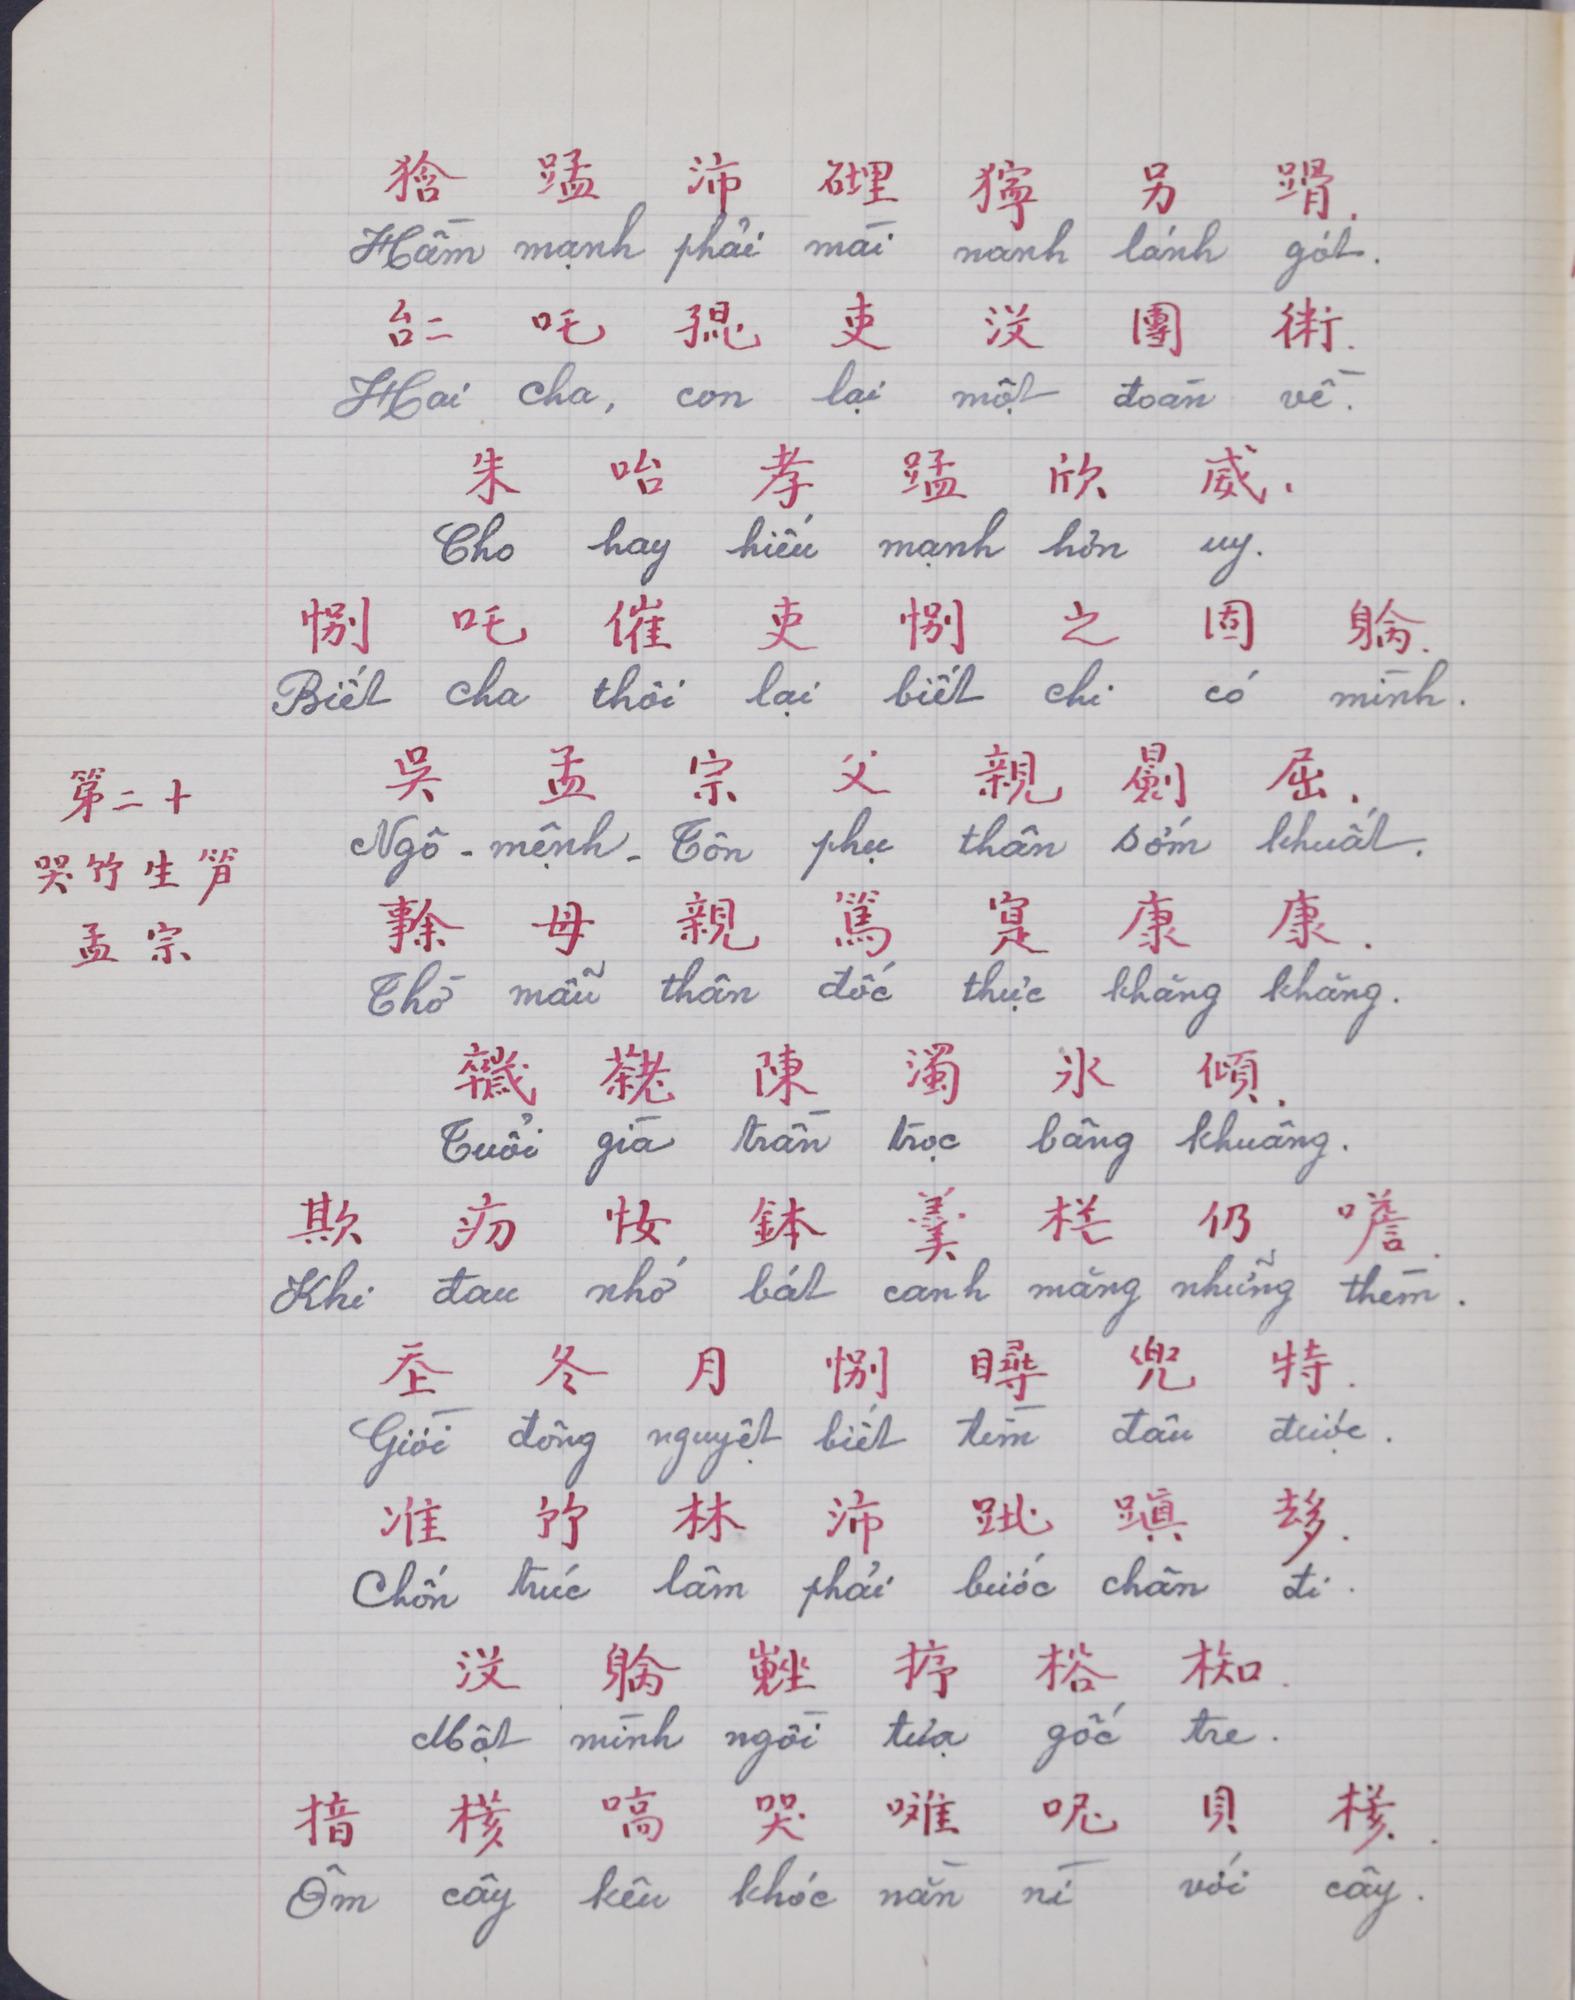 𤞻 猛 沛 𥗜 㺕 另 𨃴.
Hầm mạnh phải mài nanh lánh gót.
𠄩 吒 𡥵 吏 沒 團 術.
Hai cha, con lại một đoàn về.
朱 咍 孝 猛 欣 威.
Cho hay hiếu mạnh hơn uy.
別 吒 催 吏 別 之 固 躺.
Biết cha thôi lại biết chi có mình.
吳 孟 宗 父 親 𣌋 屈.
Ngô - mệnh - Tôn phụ thân sớm khuất.
第二十
哭竹生笋
孟宗
𠄜 母 親 篤 寔 康 康.
Thờ mẫu thân đốc thực khăng khăng.
𢆫 𦓅 陳 濁 氷 傾.
Tuổi già trần trọc bâng khuâng.
欺 疠 𢗉 鉢 羹 𣑳 仍 噡.
Khi đau nhớ bát canh măng những thèm.
𡗶 冬 月 別 尋 兜 特.
Giời đông nguyệt biết tìm đâu được.
准 竹 林 沛 𨀈 蹎 𠫾.
Chốn trúc lâm phải bước chân đi.
沒 躺 𡎢 㨋 㭲 椥.
Một mình ngồi tựa gốc tre.
揞 核 嗃 哭 㘓 呢 貝 核.
Ôm cây kêu khóc nằn nì với cây.